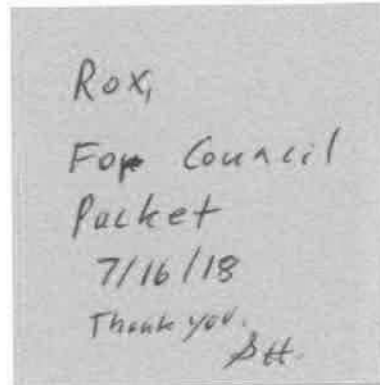 Rox,
For Council
Packet
7/16/18
Thank you.
SH.